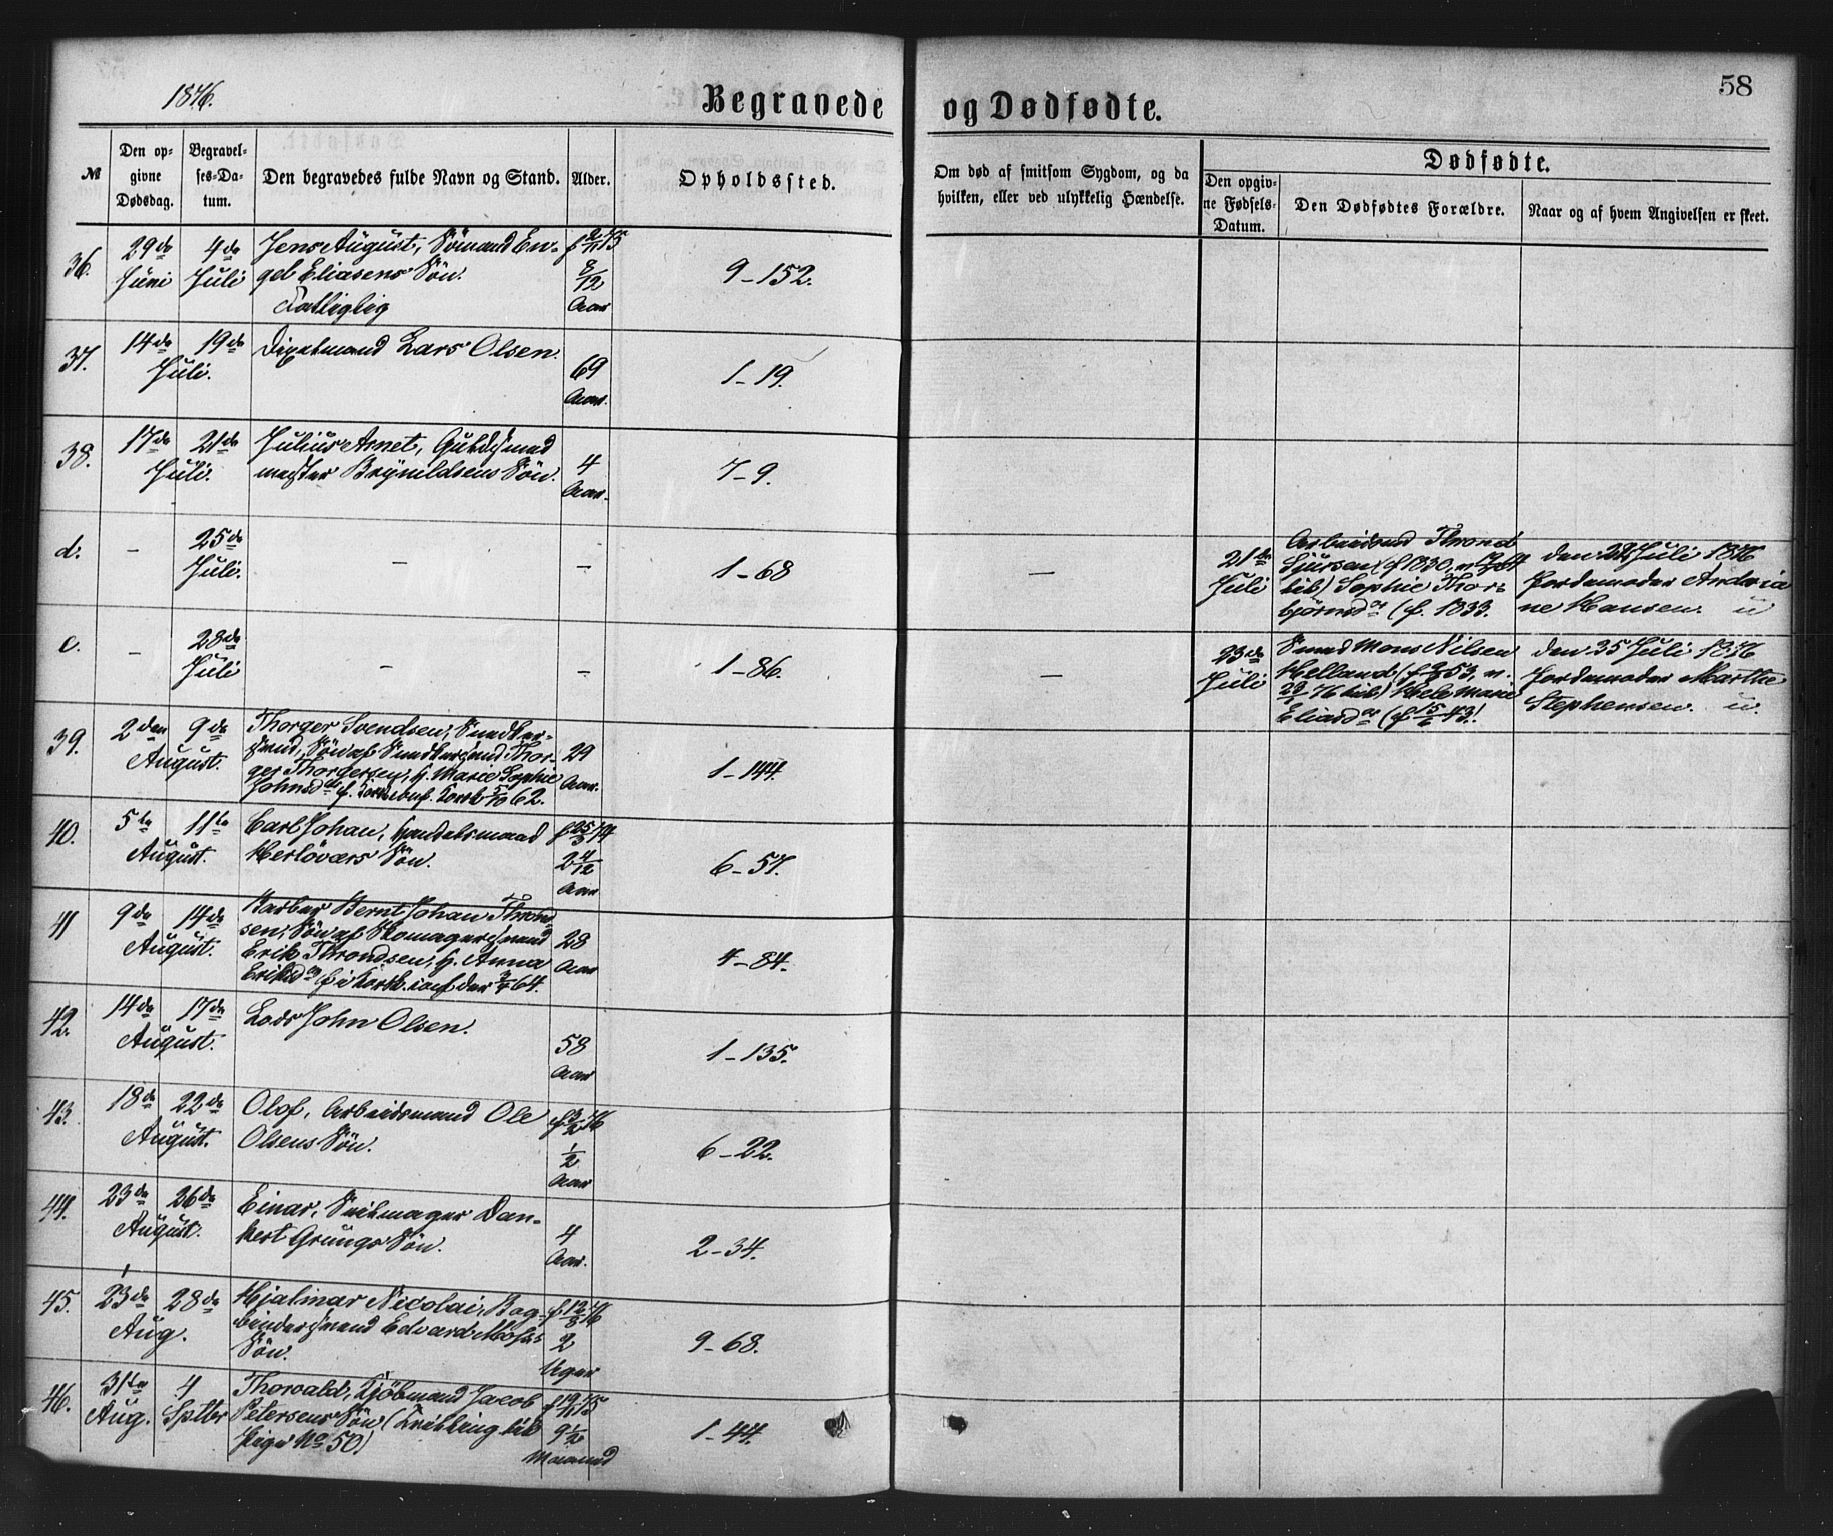 1876.
Begravede
og Dødfødte.
58
№
Den opgivne Dødsdag.
Begravelses-Datum.
Den begravedes fulde Navn og Stand.
Alder.
Opholdssted.
Om død af smitsom Sygdom, og da hvilken, eller ved ulykkelig Hændelse.
Dødfødte.
Den opgivne Fødsels-Datum.
Den Dødfødtes Forældre.
Naar og af hvem Angivelsen er skeet.
36.
29de Juni
4de Juli
Jens August, Sømand En-
geb Eliasens Søn.
Fattiglig
8/12
Aar
9-152.
37.
14de
19de
Juli.
Lars Olsen.
69
Aar.
1-19.
38.
17de
21de
Juli.
Julius Arnet, Guldsmed
mester Brynildsens Søn.
4
Aar.
7-9.
d.
-
25de
Juli.
-
-
1-68
-
21de
Juli
Arbeidsmd Thrond
Sjursen (f 1830,
Sophie Thor-
bjørnsdr (f. 1833.
den 22 Juli 1876
Jordemoder Andria
ne Hansen. u
e.
-
28de
Juli
-
-
1-86.
-
23de
Juli
Smed Mons Nilsen
Helland
Eliasdr (f 15/6 43!
den 25 Juli 1876
Jordemoder Marthe
Stephensen. u.
39.
2den
9de
August.
Thorger Svendsen, Snedker-
svend, Søn af Snedkersvend Thor-
ger Thorgersen, h. Marie Sophie
Johnsdr
62.
29
Aar.
1-144.
40.
5te
11te
August.
Carl Johan, Handelsmand
Herløvers Søn.
f 25/3 74
2 4/12
Aar
6-57.
41
9de
14de
August.
Barber Bernt Johan Thrond-
sen, Søn af Skomagersvend
Erik Throndsen, h. Anna
Eriksdr
64.
28
Aar
4-84.
42.
14de
17de
August.
Lods John Olsen.
58
Aar
1-135.
43.
18de
22de
August.
Olof, Arbeidsmand Ole
Olsens Søn.
1/2
Aar
6-22.
44.
23de
26de
August.
Einar, Seilmager Dan-
kert Grungs Søn.
4
Aar.
2-34.
45.
23de
28de
Aug.
Hjalmar Nicolai, Bog-
bindersvend Edvard
Søn.
2
Uger
9-68.
46.
31te
Aug.
4
Sptbr
Thorvald, Kjøbmand Jacob
Petersens Søn (Tvilling til
Pige No 50)
f 19/11 75
9 1/2
Maaned
1-44.